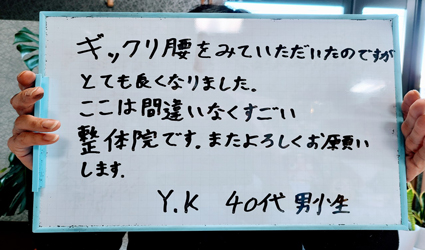 ギックリ腰をみていただいたのですが
とても良くなりました。
ここは間違いなくすごい
整体院です。またよろしくお願い
します。
Y.K 40代 男性